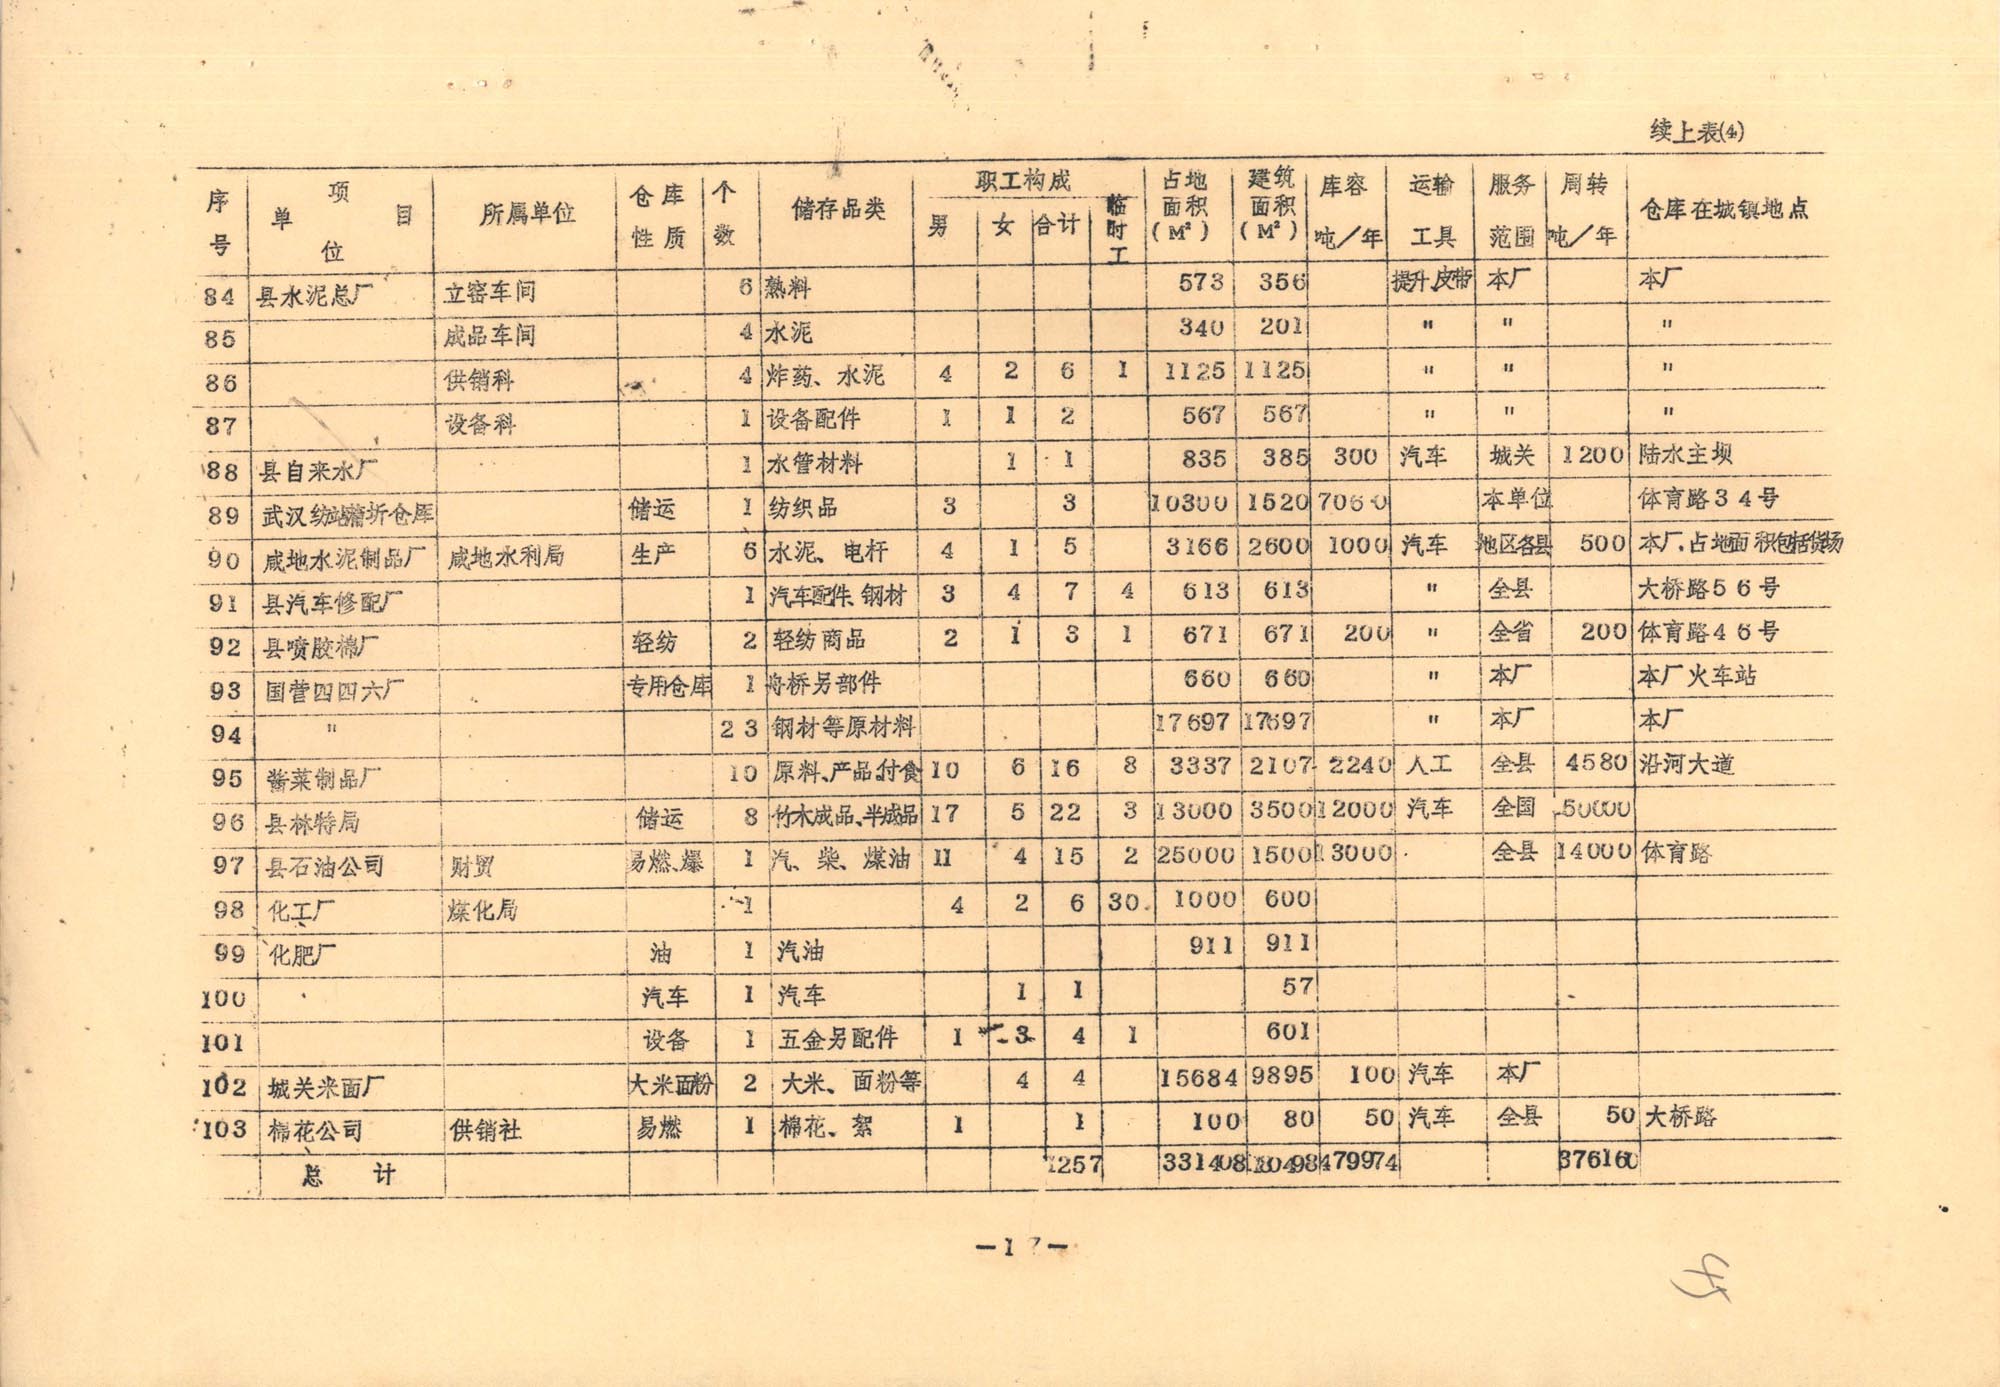 续上表(4)
序号 项目 单位 所属单位 仓库性质 个数 储存品类 职工构成 男 女 合计 临时工 占地面积(M²) 建筑面积(M²) 库容吨/年 运输工具 服务范围 周转吨/年 仓库在城镇地点
84 县水泥总厂 立窑车间 6 熟料 573 356 提升、皮带 本厂 本厂
85 成品车间 4 水泥 340 201 " " "
86 供销科 4 炸药、水泥 4 2 6 1 1125 1125 " " "
87 设备科 1 设备配件 1 1 2 567 567 " " "
88 县自来水厂 1 水管材料 1 1 835 385 300 汽车 城关 1200 陆水主坝
89 武汉纺站蒲圻仓库 储运 1 纺织品 3 3 10300 1520 7060 本单位 体育路34号
90 咸地水泥制品厂 咸地水利局 生产 6 水泥、电杆 4 1 5 3166 2600 1000 汽车 地区各县 500 本厂、占地面积包括货场
91 县汽车修配厂 1 汽车配件、钢材 3 4 7 4 613 613 " 全县 大桥路56号
92 县喷胶棉厂 轻纺 2 轻纺商品 2 1 3 1 671 671 200 " 全省 200 体育路46号
93 国营四四六厂 专用仓库 1 舟桥另部件 660 660 " 本厂 本厂火车站
94 " 23 钢材等原材料 17697 17697 " 本厂 本厂
95 酱菜制品厂 10 原料、产品、付食 10 6 16 8 3337 2107 2240 人工 全县 4580 沿河大道
96 县林特局 储运 8 竹木成品、半成品 17 5 22 3 13000 3500 12000 汽车 全国 50000
97 县石油公司 财贸 易燃、爆 1 汽、柴、煤油 11 4 15 2 25000 1500 13000 全县 14000 体育路
98 化工厂 煤化局 1 4 2 6 30 1000 600
99 化肥厂 油 1 汽油 911 911
100 汽车 1 汽车 1 1 57
101 设备 1 五金另配件 1 3 4 1 601
102 城关米面厂 大米面粉 2 大米、面粉等 4 4 15684 9895 100 汽车 本厂
103 棉花公司 供销社 易燃 1 棉花、絮 1 1 100 80 50 汽车 全县 50 大桥路
总计 1257 331408 479974 376160
—17—